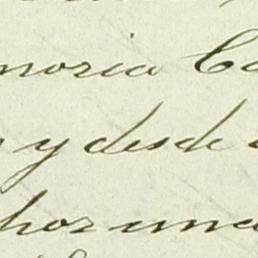 moria Ca
y desde
hor una